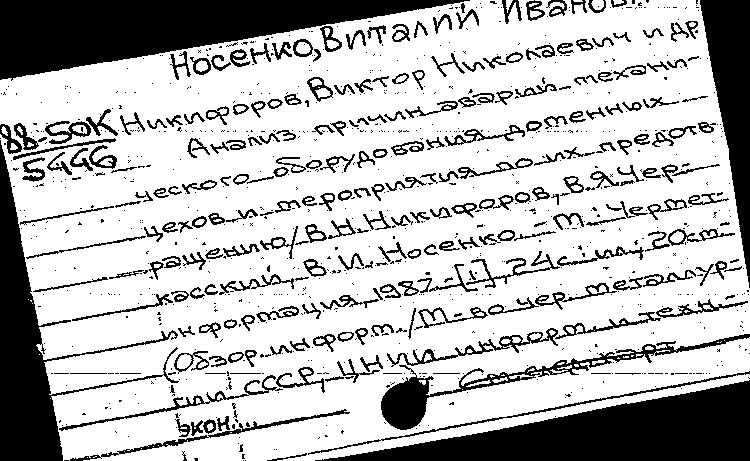 Носенко, Виталий Иванович
88-50К
5446
Никифоров, Виктор Николаевич и др
Анализ причин аварий механи-
ческого оборудования доменных
цехов и мероприятия по их предотв-
ращению / В.Н. Никифоров, В.Я. Чер-
касский, В.И. Носенко. - М.: Чермет-
информация, 1987. - [1], 24 с.: ил.; 20 см.-
(Обзор. информ. / М-во чер. металлур-
гии СССР, ЦНИИ информ. и техн.-
экон....
См. след. карт.